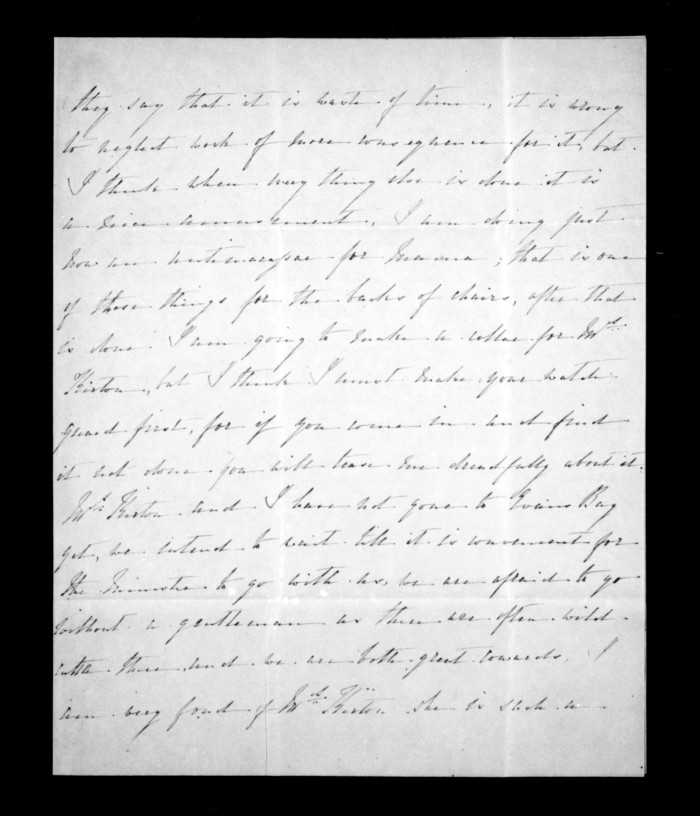 they say that it is waste of time, it is wrong
to neglect work of more consequence for it, but
I think when every thing else is done it is
a nice amusement, I am doing just
now an antimacassar for Mama; that is one
of those things for the backs of chairs, after that
is done I am going to make a collar for Mrs.
Kirton, but I think I must make your watch
guard first, for if you come in and find
it not done you will tease me dreadfully about it.
Mrs. Kirton and I have not gone to Evans Bay
yet, we intend to wait till it is convenient for
the Minister to go with us, we are afraid to go
without a gentleman as there are often wild
cattle there and we are both great cowards, I
am very fond of Mrs. Kirton she is such a